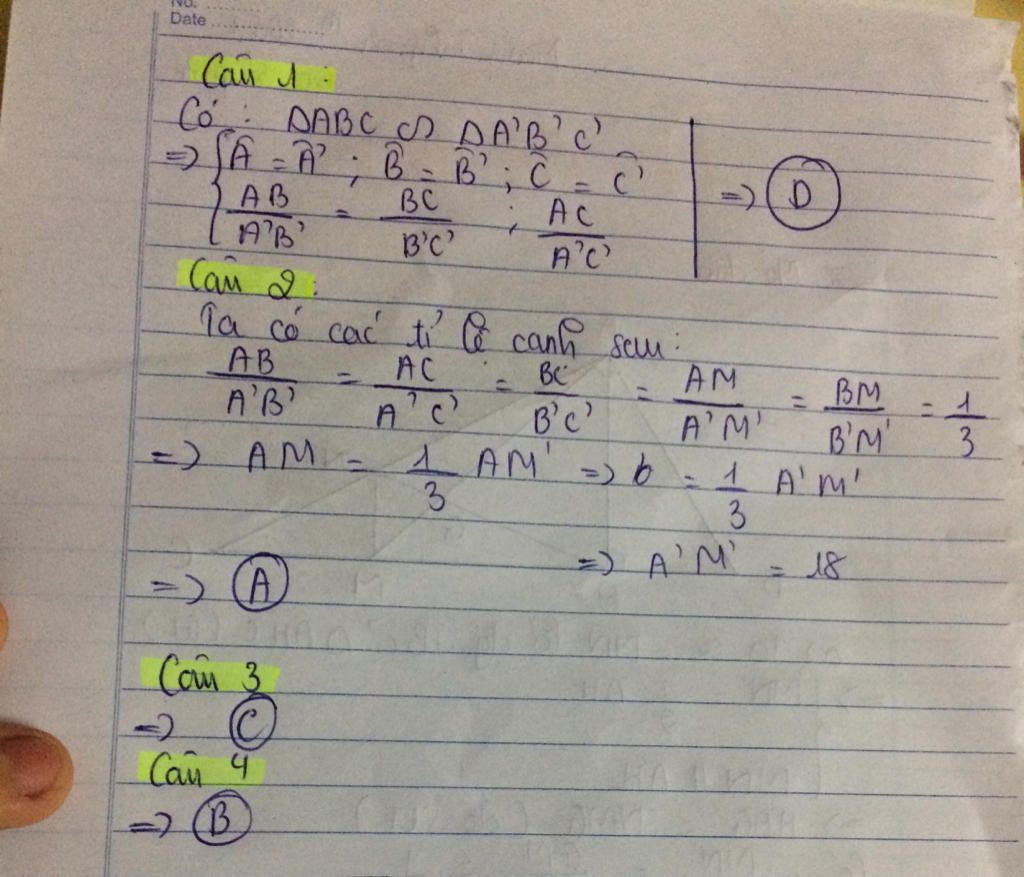 No. ..........
Date ....................
Câu 1:
Có : ΔABC ∽ ΔA'B'C'
=> { Â = Â' ; B̂ = B̂' ; Ĉ = Ĉ'
AB/A'B' = BC/B'C' ; AC/A'C'
=> D
Câu 2:
Ta có các tỉ lệ cạnh sau:
AB/A'B' = AC/A'C' = BC/B'C' = AM/A'M' = BM/B'M' = 1/3
=> AM = 1/3 AM' => 6 = 1/3 A'M'
=> A'M' = 18
=> A
Câu 3
=> C
Câu 4
=> B